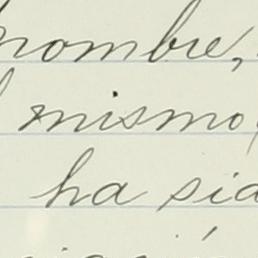 nombre,
mismo
ha sid